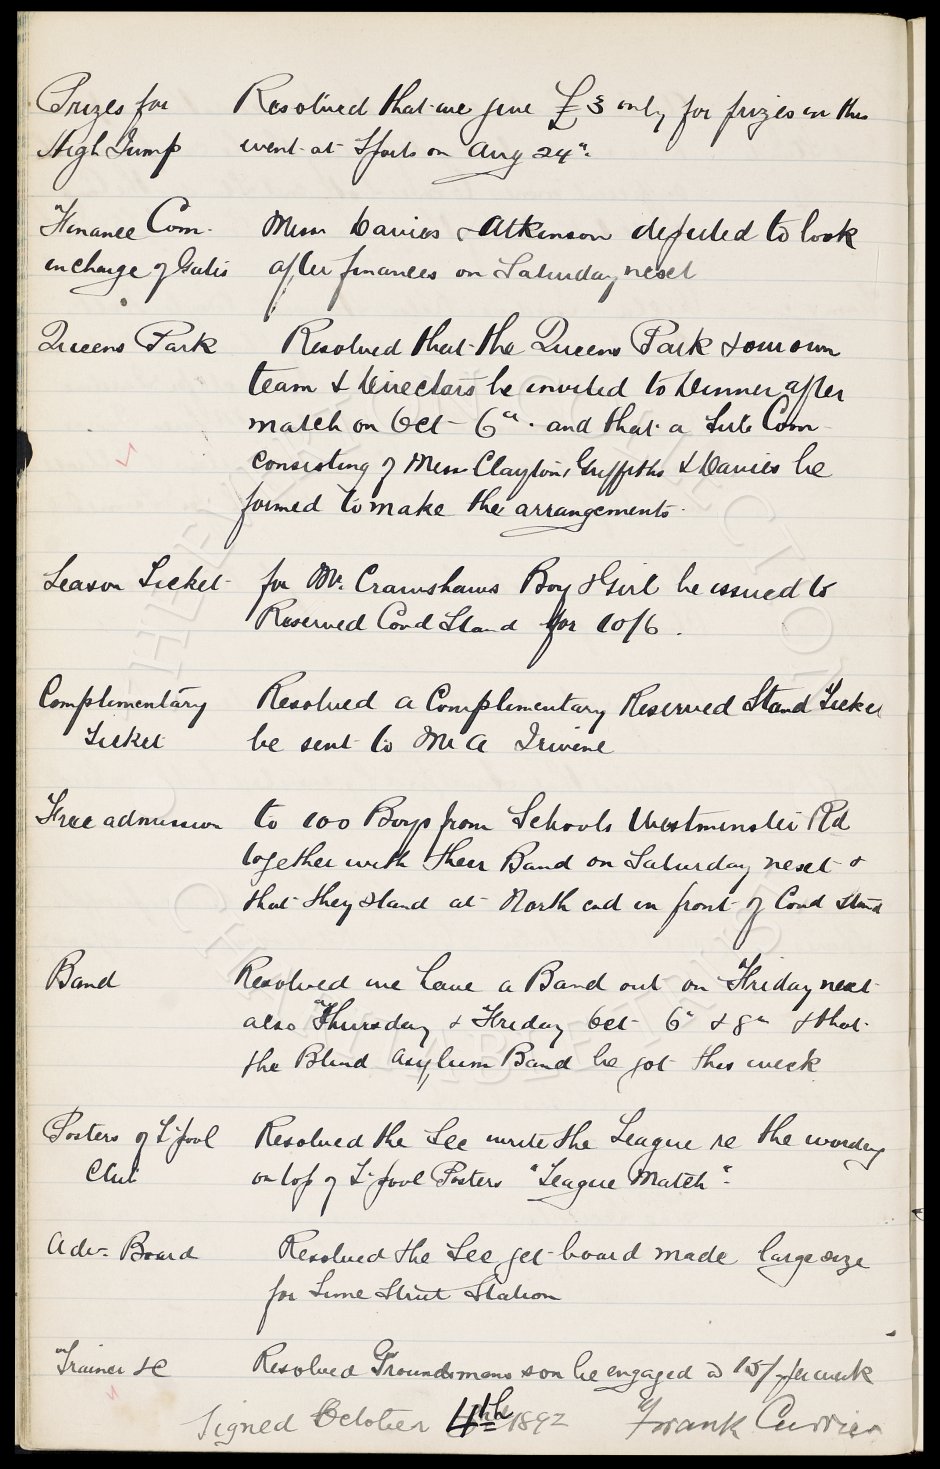 Prizes for Resolved that we give £3 only for prizes in this
High Jump event at Sports on Aug 24th.
Finance Com. Messrs Davies & Atkinson deputed to look
in charge of Gates after finances on Saturday next
Queens Park Resolved that the Queens Park & our own
team & Directors be invited to Dinner after
match on Oct 6th. and that a Sub Com
consisting of Messrs Clayton, Griffiths & Davies be
formed to make the arrangements.
Season Ticket for Mr. Crawshaws Boy & Girl be issued to
Reserved Cov'd Stand for 10/6.
Complimentary Resolved a Complimentary Reserved Stand Ticket
Ticket be sent to Mr A Irvine
Free admission to 100 Boys from Schools Westminster Rd
together with their Band on Saturday next &
that they stand at North end in front of Cov'd Stand
Band Resolved we have a Band out on Friday next
also Thursday & Friday Oct 6th & 8th & that
the Blind Asylum Band be got this week
Posters of L'pool Resolved the Sec write the League re the wording
Club on top of L'pool Posters "League Match".
Adv. Board Resolved the Sec get board made large size
for Lime Street Station
Trainer &c Resolved Groundsmans son be engaged @ 15/- per week
Signed October 4th 1892 Frank Currier
THE EVERTON COLLECTION
CHARITABLE TRUST